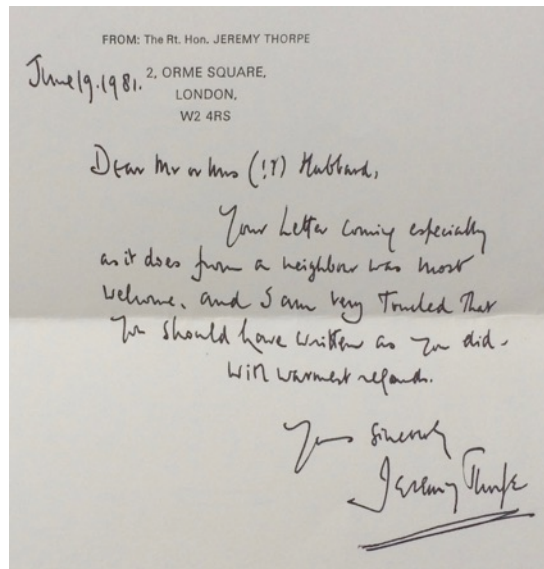 FROM: The Rt. Hon. JEREMY THORPE
June 19. 1981.
2, ORME SQUARE,
LONDON,
W2 4RS
Dear Mr or Mrs (!?) Hubbard,
Your letter coming especially
as it does from a neighbour was most
welcome. and I am very touched that
you should have written as you did.
With warmest regards.
Yours sincerely
Jeremy Thorpe